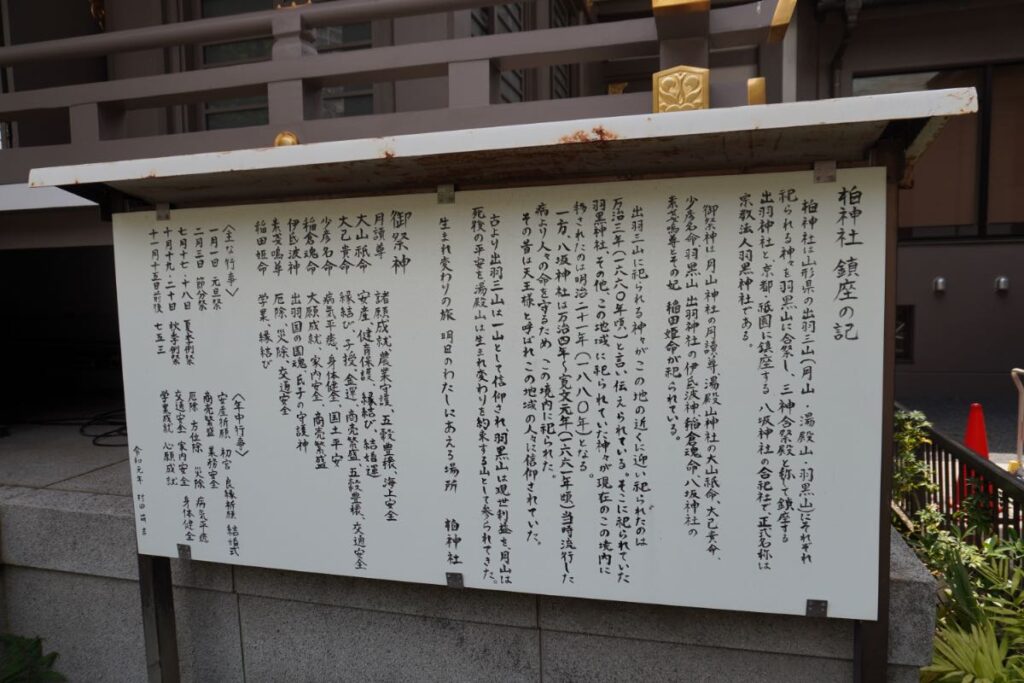 柏神社 鎮座の記
柏神社は山形県の出羽三山(月山・湯殿山・羽黒山)にそれぞれ
祀られる神々を羽黒山に合祭し、三神合祭殿と称して鎮座する
出羽神社と京都・祇園に鎮座する 八坂神社の合祀社で正式名称は
宗教法人羽黒神社である。
御祭神は月山神社の月讀尊、湯殿山神社の大山祇命、大己貴命、
少彦名命、羽黒山 出羽神社の伊氐波神 稲倉魂命、八坂神社の
素盞嗚尊とその妃 稲田姫命が祀られている。
出羽三山に祀られる神々がこの地の近くに迎い祀られたのは
万治三年(一六六〇年頃)と言い伝えられている。そこに祀られていた
羽黒神社、その他、この地域に祀られていた神々が現在のこの境内に
移されたのは明治二十一年(一八八〇年)となる。
一方、八坂神社は万治四年~寛文元年(一六六一年頃)当時流行した
病より人々の命を守るため この境内に祀られた。
その昔は天王様と呼ばれ、この地域の人々に信仰されていた。
古より出羽三山は一山として信仰され、羽黒山は現世利益を月山は
死後の平安を湯殿山は生まれ変わりを約束する山として参られてきた。
生まれ変わりの旅 明日のわたしにあえる場所 柏神社
御祭神
月讀尊 諸願成就、農業守護、五穀豊穣、海上安全
大山祇命 安産、健育保護、縁結び、結婚運
大己貴命 縁結び、子授、金運、商売繁盛、五穀豊穣、交通安全
少彦名命 病気平癒、身体健全、国土平安
稲倉魂命 大願成就、家内安全、商売繁盛
伊氐波神 出羽国の国魂、氏子の守護神
素盞嗚尊 厄除、災除、交通安全
稲田姫命 学業、縁結び
〈主な行事〉
一月一日 元旦祭
二月三日 節分祭
七月十七・十八日 夏季例祭
十月十九・二十日 秋季例祭
十一月十五日前後 七五三
〈年中行事〉
安産祈願 初宮 良縁祈願 結婚式
商売繁盛 業務安全
厄除 方位除 災除 病気平癒
交通安全 家内安全 身体健全
学業成就 心願成就
令和元年